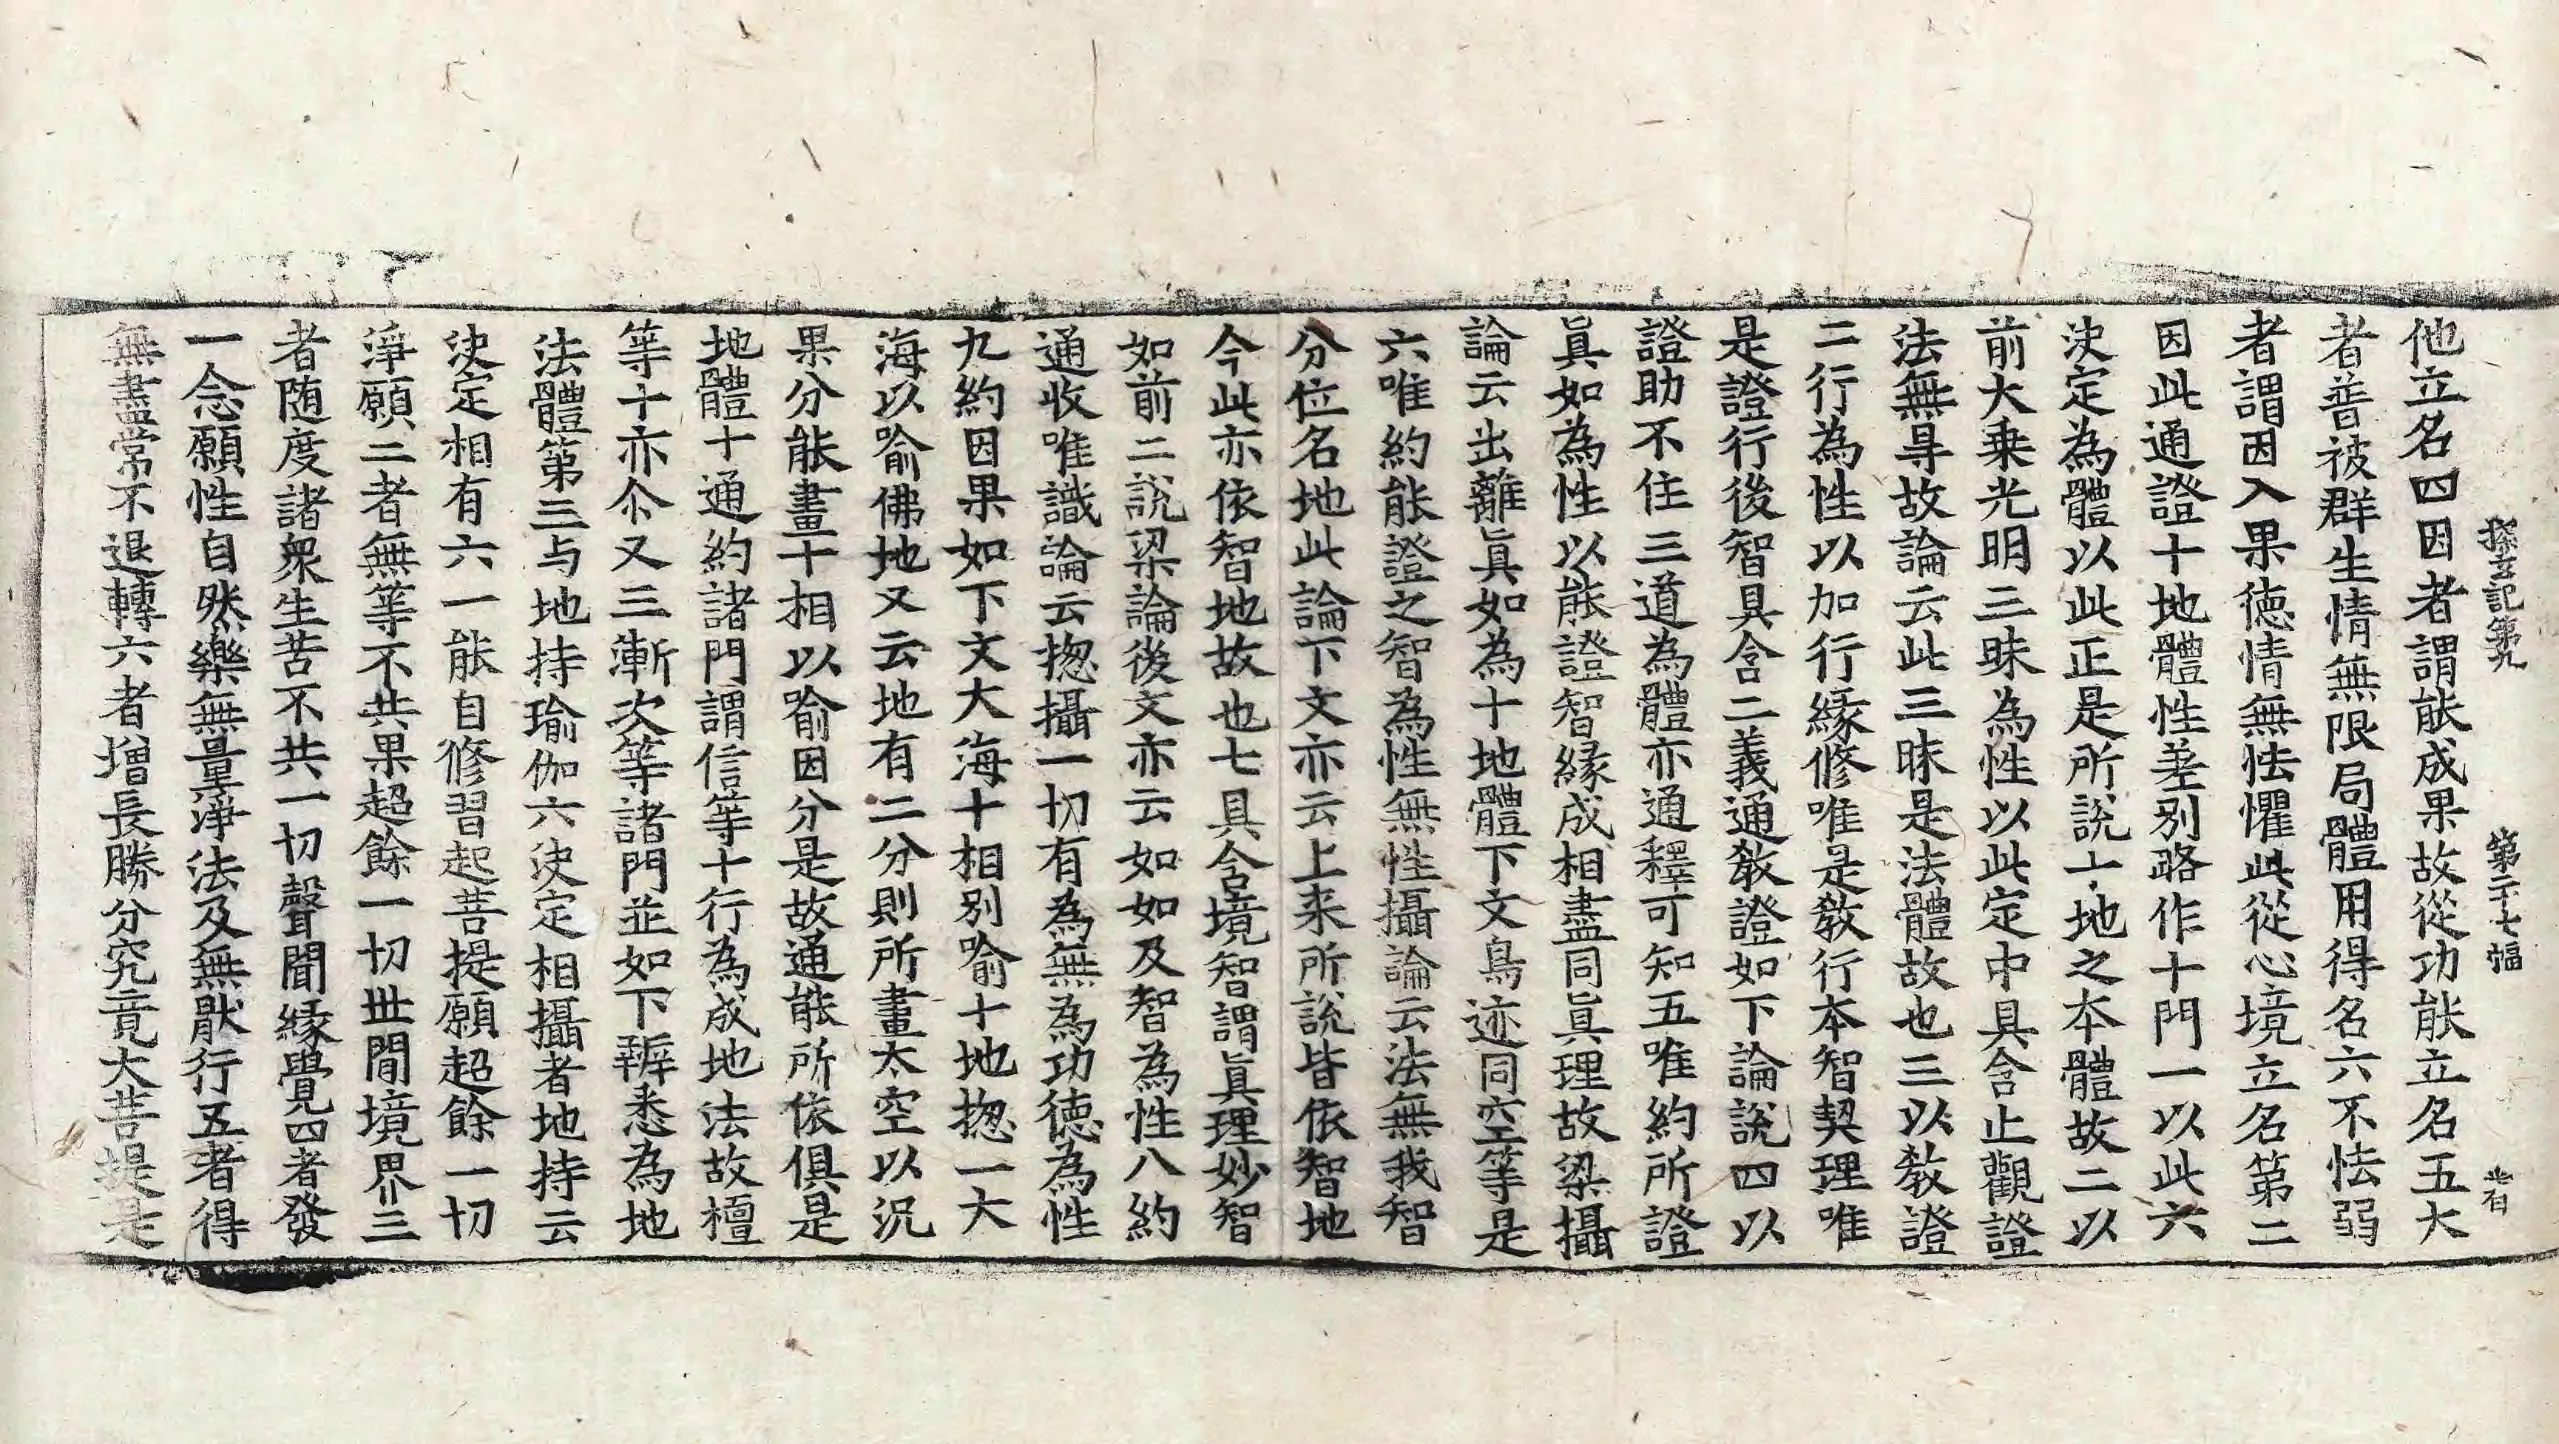 探玄記第九　第二十七幅
他立名四因者謂能成果故從功能立名五大
者普被群生情無限局體用得名六不怯弱
者謂因入果德情無怯懼此從心境立名第二
因此通證十地體性差別略作十門一以此六
决定為體以此正是所說十地之本體故二以
前大乗光明三昧為性以此定中具含止觀證
法無㝵故論云此三昧是法體故也三以教證
二行為性以加行縁修唯是教行本智契理唯
是證行後智具含二義通教證如下論說四以
證助不住三道為體亦通釋可知五唯約所證
眞如為性以能證智縁成相盡同眞理故梁攝
論云出離眞如為十地體下文鳥迹同空等是
六唯約能證之智為性無性攝論云法無我智
分位名地此論下文亦云上来所說皆依智地
今此亦依智地故也七具含境智謂眞理妙智
如前二說梁論後文亦云如如及智為性八約
通收唯識論云揔攝一切有為無為功徳為性
九約因果如下文大海十相別喻十地揔一大
海以喻佛地又云地有二分則所畫太空以况
果分能畫十相以喻因分是故通能所依俱是
地體十通約諸門謂信等十行為成地法故檀
等十亦尒又三漸次等諸門並如下辨悉為地
法體第三与地持瑜伽六决定相攝者地持云
决定相有六一能自修習起菩提願超餘一切
淨願二者無等不共果超餘一切丗間境界三
者随度諸衆生苦不共一切聲聞縁覺四者發
一念願性自然樂無量淨法及無猒行五者得
無盡常不退轉六者增長勝分究竟大菩提是